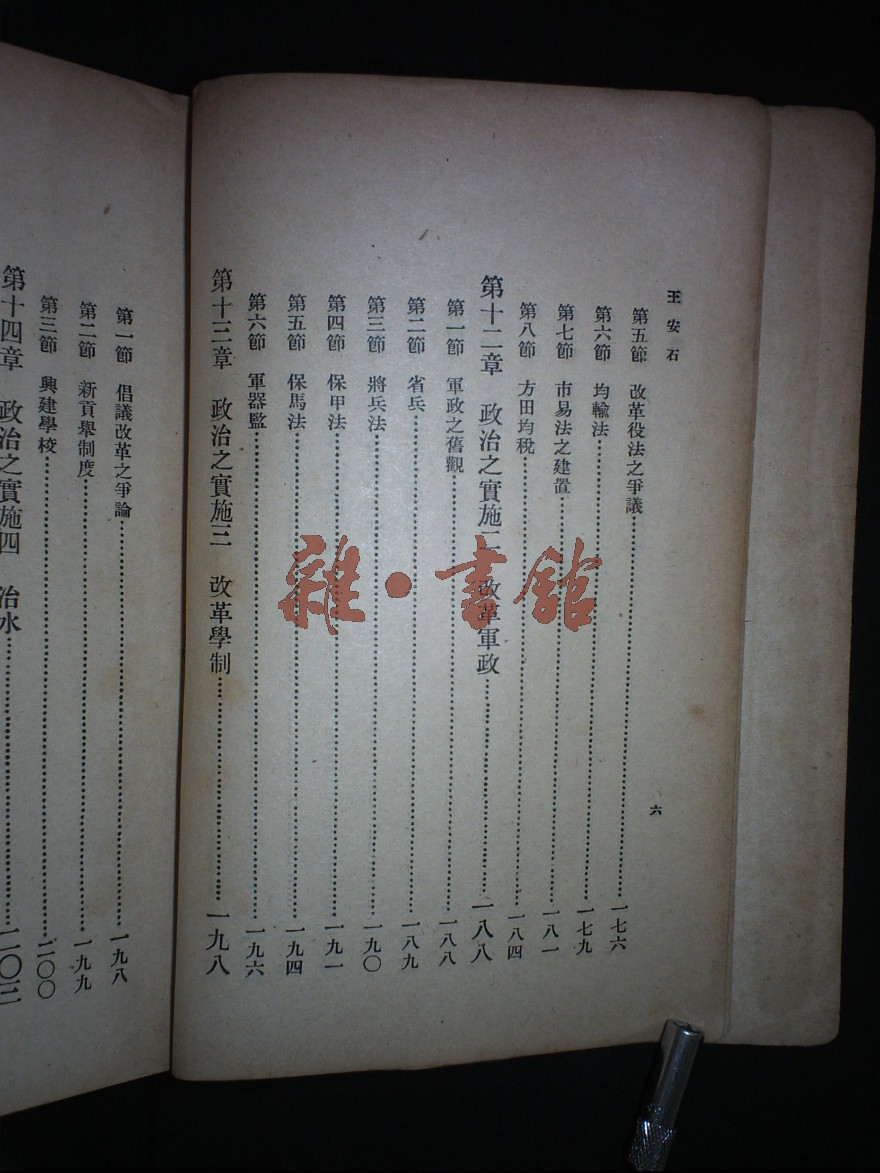 王安石
第五節　改革役法之爭議……一七六
第六節　均輸法……一七九
第七節　市易法之建置……一八一
第八節　方田均稅……一八四
第十二章　政治之實施二　改革軍政……一八八
第一節　軍政之舊觀……一八八
第二節　省兵……一八九
第三節　將兵法……一九〇
第四節　保甲法……一九一
第五節　保馬法……一九四
第六節　軍器監……一九六
第十三章　政治之實施三　改革學制……一九八
六
第一節　倡議改革之爭論……一九八
第二節　新貢舉制度……一九九
第三節　興建學校……二〇〇
第十四章　政治之實施四　治水……二〇三
雜·書館